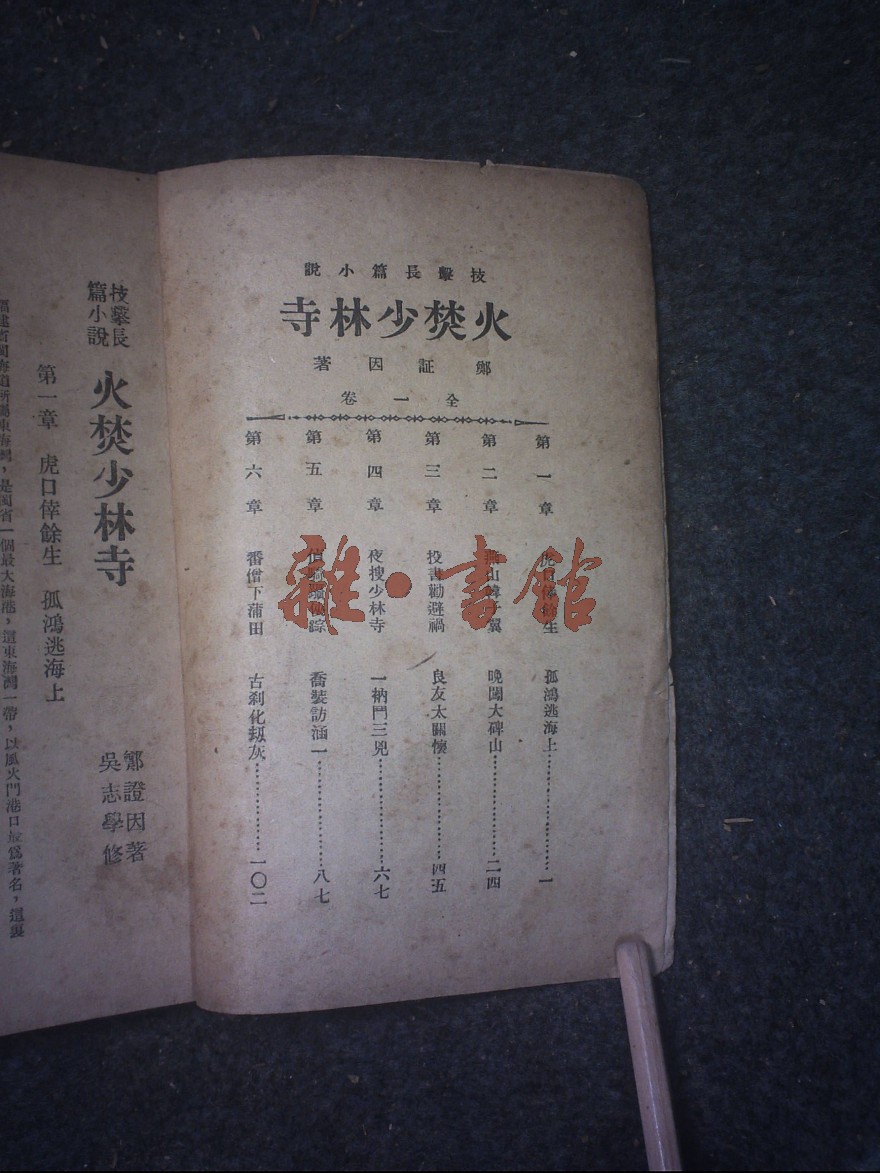 技擊長篇小說
火焚少林寺
鄭証因著
全一卷
第一章 虎口倖餘生 孤鴻逃海上………………一
第二章 晚闖大碑山………………二四
第三章 投書勸避禍 良友太關懷………………四五
第四章 夜搜少林寺 一衲鬥三兇………………六七
第五章 喬裝訪涵一………………八七
第六章 番僧下蒲田 古刹化刼灰………………一〇二
雜·書館
技擊長篇小說 火焚少林寺
鄭證因著
吳志學修
第一章 虎口倖餘生 孤鴻逃海上
東海灣，是閩省一個最大海港，這東海灣一帶，以風火門港口最爲著名，這裏